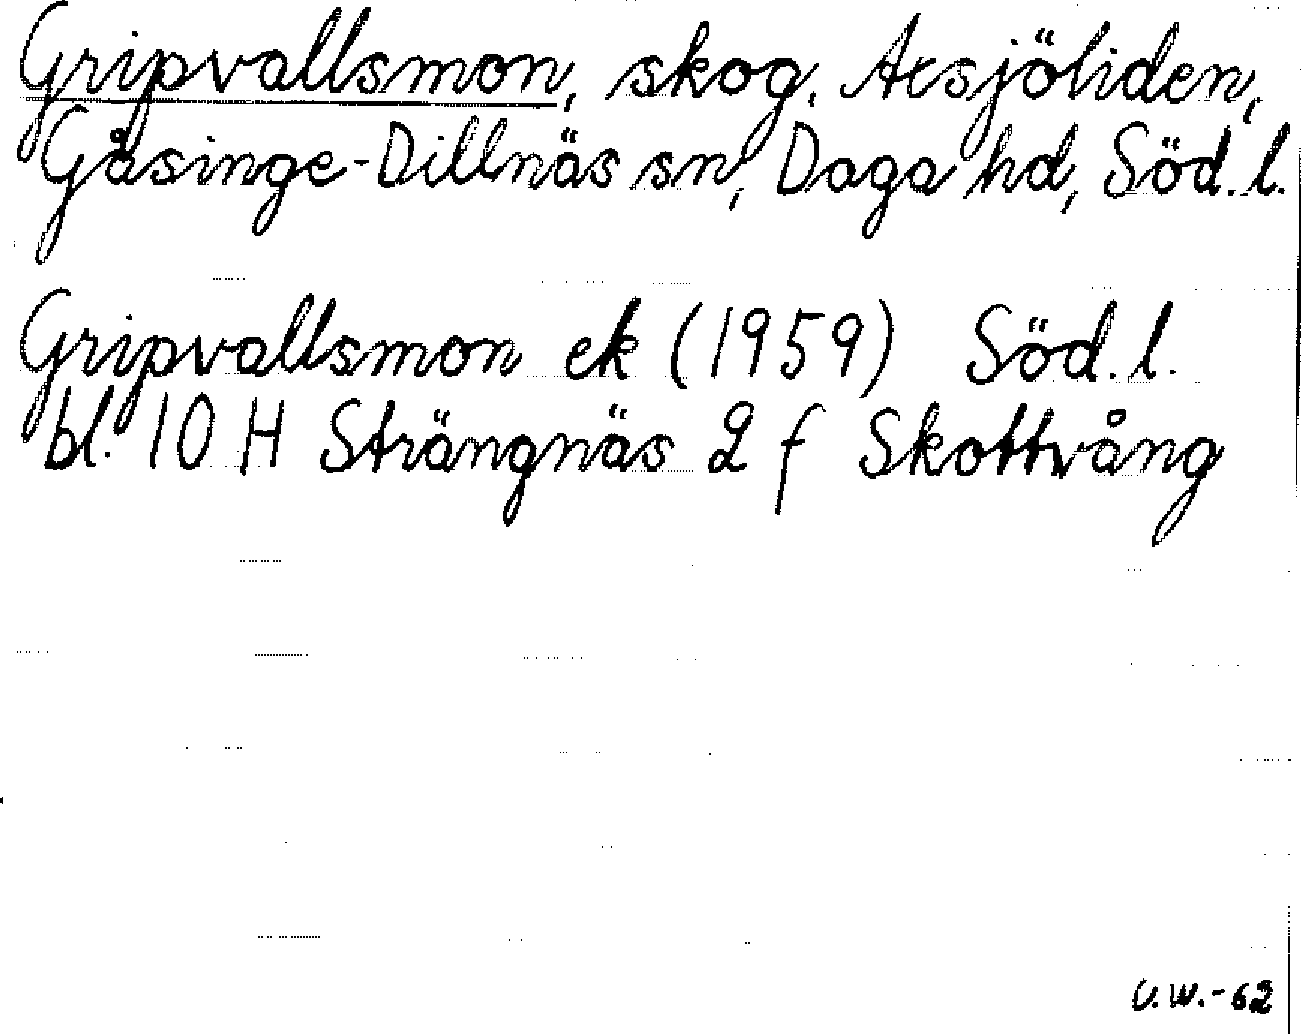 Gripvallsmon, skog, Atsjöliden,
Gåsinge-Dillnäs sn, Daga hd, Söd. l.
Gripvallsmon ek (1959) Söd. l.
bl. 10 H Strängnäs 2 f Skottvång
U.W.-62